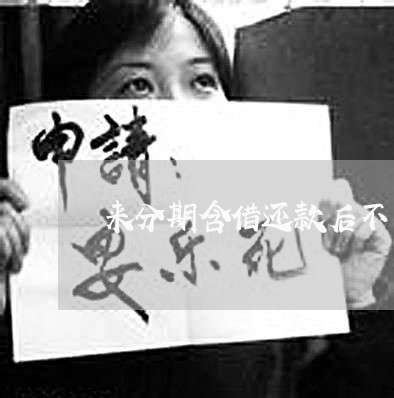 申請：
来分期含借还款后不
安乐死